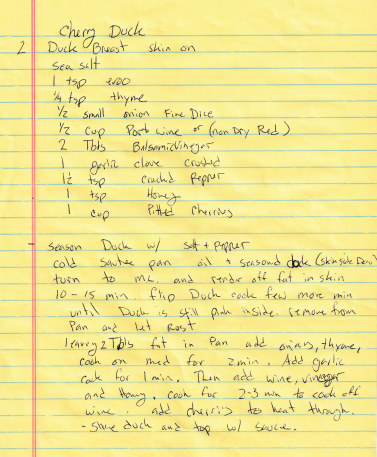 Cherry Duck
2 Duck Breast skin on
sea salt
1 tsp evoo
1/4 tsp thyme
1/2 small onion Fine Dice
1/2 cup Port wine or (non Dry Red)
2 Tbls Balsamic Vinegar
1 garlic clove crushed
1 1/2 tsp Crack'd Pepper
1 tsp Honey
1 cup Pitted Cherries
- season Duck w/ salt + Pepper
cold sautee pan oil + seasond duck (skin side Down)
turn to med. and render off fat in skin
10 - 15 min. flip Duck cook few more min
until Duck is still pink inside. remove from
Pan and let Rest
leaving 2 Tbls fat in Pan add onions, thyme,
cook on med for 2 min. Add garlic
cook for 1 min. Then add wine, vinegar
and Honey. cook for 2-3 min to cook off
wine. add cherries to heat through.
- Slice duck and top w/ sauce.